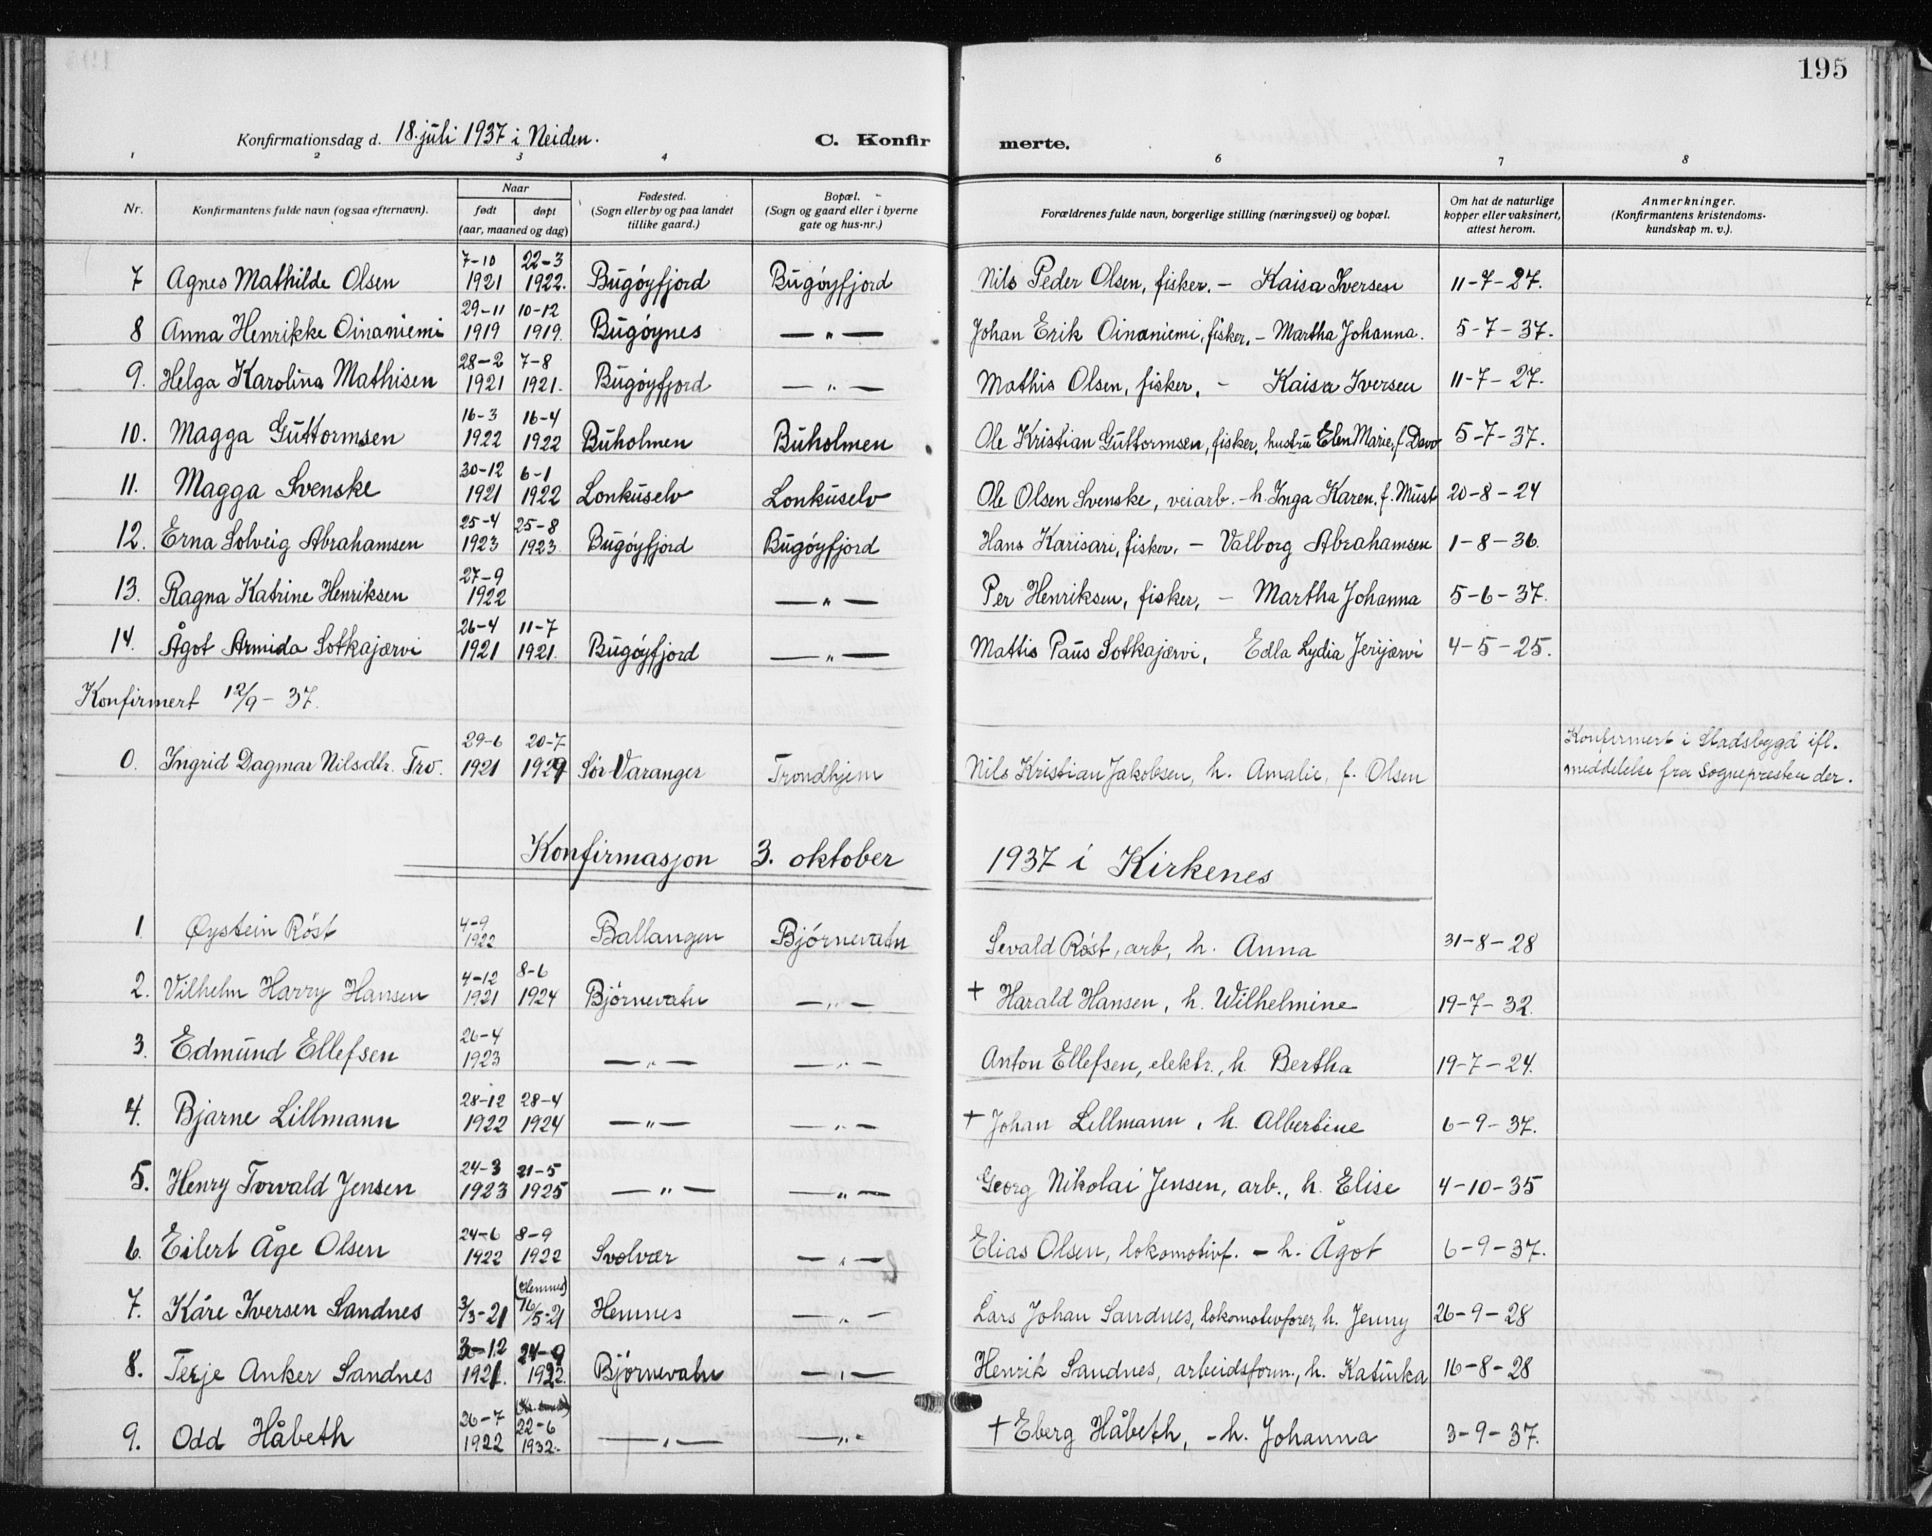 195
Konfirmationsdag d. 18. juli 1937 i Neiden. C. Konfir merte.
1 2 3 4 6 7 8
Nr. Konfirmantens fulde navn (ogsaa efternavn). Naar født døpt (aar, maaned og dag) Fødested. (Sogn eller by og paa landet tillike gaard.) Bopæl. (Sogn og gaard eller i byerne gate og hus-nr.) Forældrenes fulde navn, borgerlige stilling (næringsvei) og bopæl. Om hat de naturlige kopper eller vaksinert, attest herom. Anmerkninger. (Konfirmantens kristendoms-kundskap m. v.).
7 Agnes Mathilde Olsen 7-10 1921 22-3 1922. Bugøyfjord Bugøyfjord Nils Peder Olsen, fisker. - Kaisa Iversen 11-7-27.
8 Anna Henrikke Oinaniemi 29-11 1919 10-12 1919. Bugøynes —"— Johan Erik Oinaniemi, fisker. - Martha Johanna. 5-7-37.
9. Helga Karolina Mathisen 28-2 1921 7-8 1921. Bugøyfjord —"— Mathis Olsen, fisker, - Kaisa Iversen 11-7-27.
10. Magga Guttormsen 16-3 1922 16-4 1922 Buholmen Buholmen Ole Kristian Guttormsen, fisker, hustru Elen Marie, f. Davo 5-7-37.
11. Magga Svenske 30-12 1921 6-1 1922 Lonkuselv Lonkuselv Ole Olsen Svenske, veiarb. - h Inga Karen. f. Must 20-8-24
12. Erna Solveig Abrahamsen 25-4 1923 25-8 1923. Bugøyfjord Bugøyfjord Hans Karisari, fisker. - Valborg Abrahamsen 1-8-36.
13. Ragna Katrine Henriksen 27-9 1922 —"— Per Henriksen, fisker, - Martha Johanna 5-6-37.
14. Ågot Armida Sotkajærvi 26-4 1921 11-7 1921. Bugøyfjord —"— Mattis Paus Sotkajærvi, Edla Lydia Jerijærvi 4-5-25.
Konfirmert 12/9-37.
0. Ingrid Dagmar Nilsdtr. Tro. 29-6 1921 20-7 1929 Sør Varanger Trondhjem Nils Kristian Jakobsen, h. Amalie, f. Olsen Konfirmert i Stadsbygd ifl. meddelelse fra Sognepresten der.
Konfirmasjon 3. oktober 1937 i Kirkenes
1 Øystein Røst 4-9 1922 Ballangen Bjørnevatn Sevald Røst, arb, h. Anna 31-8-28
2. Vilhelm Harry Hansen 4-12 1921 8-6 1924 Bjørnevatn —"— + Harald Hansen, h. Wilhelmine 19-7-32.
3. Edmund Ellefsen 26-4 1923 —"— —"— Anton Ellefsen, elektr., h. Bertha 19-7-24.
4. Bjarne Lillmann 28-12 1922 28-4 1924 —"— —"— + Johan Lillmann, h. Albertine 6-9-37.
5. Henry Torvald Jensen 24-3 1923 21-5 1925 —"— —"— Georg Nikolai Jensen, arb., h. Elise 4-10-35
6. Eilert Åge Olsen 24-6 1922 8-9 1922 Svolvær —"— Elias Olsen, lokomotivf. - h. Ågot 6-9-37.
7. Kåre Iversen Sandnes 3/3-21 (Hemnes) 16/5-21 Hemnes —"— Lars Johan Sandnes, lokomotivfører, h. Jenny 26-9-28
8. Terje Anker Sandnes 30-12 1921. 24-9 1922. Bjørnevatn —"— Henrik Sandnes, arbeidsform., h. Katinka 16-8-28
9. Odd Håbeth 26-7 1922 22-6 1932. —"— —"— + Eberg Håbeth, - h. Johanna 3-9-37.